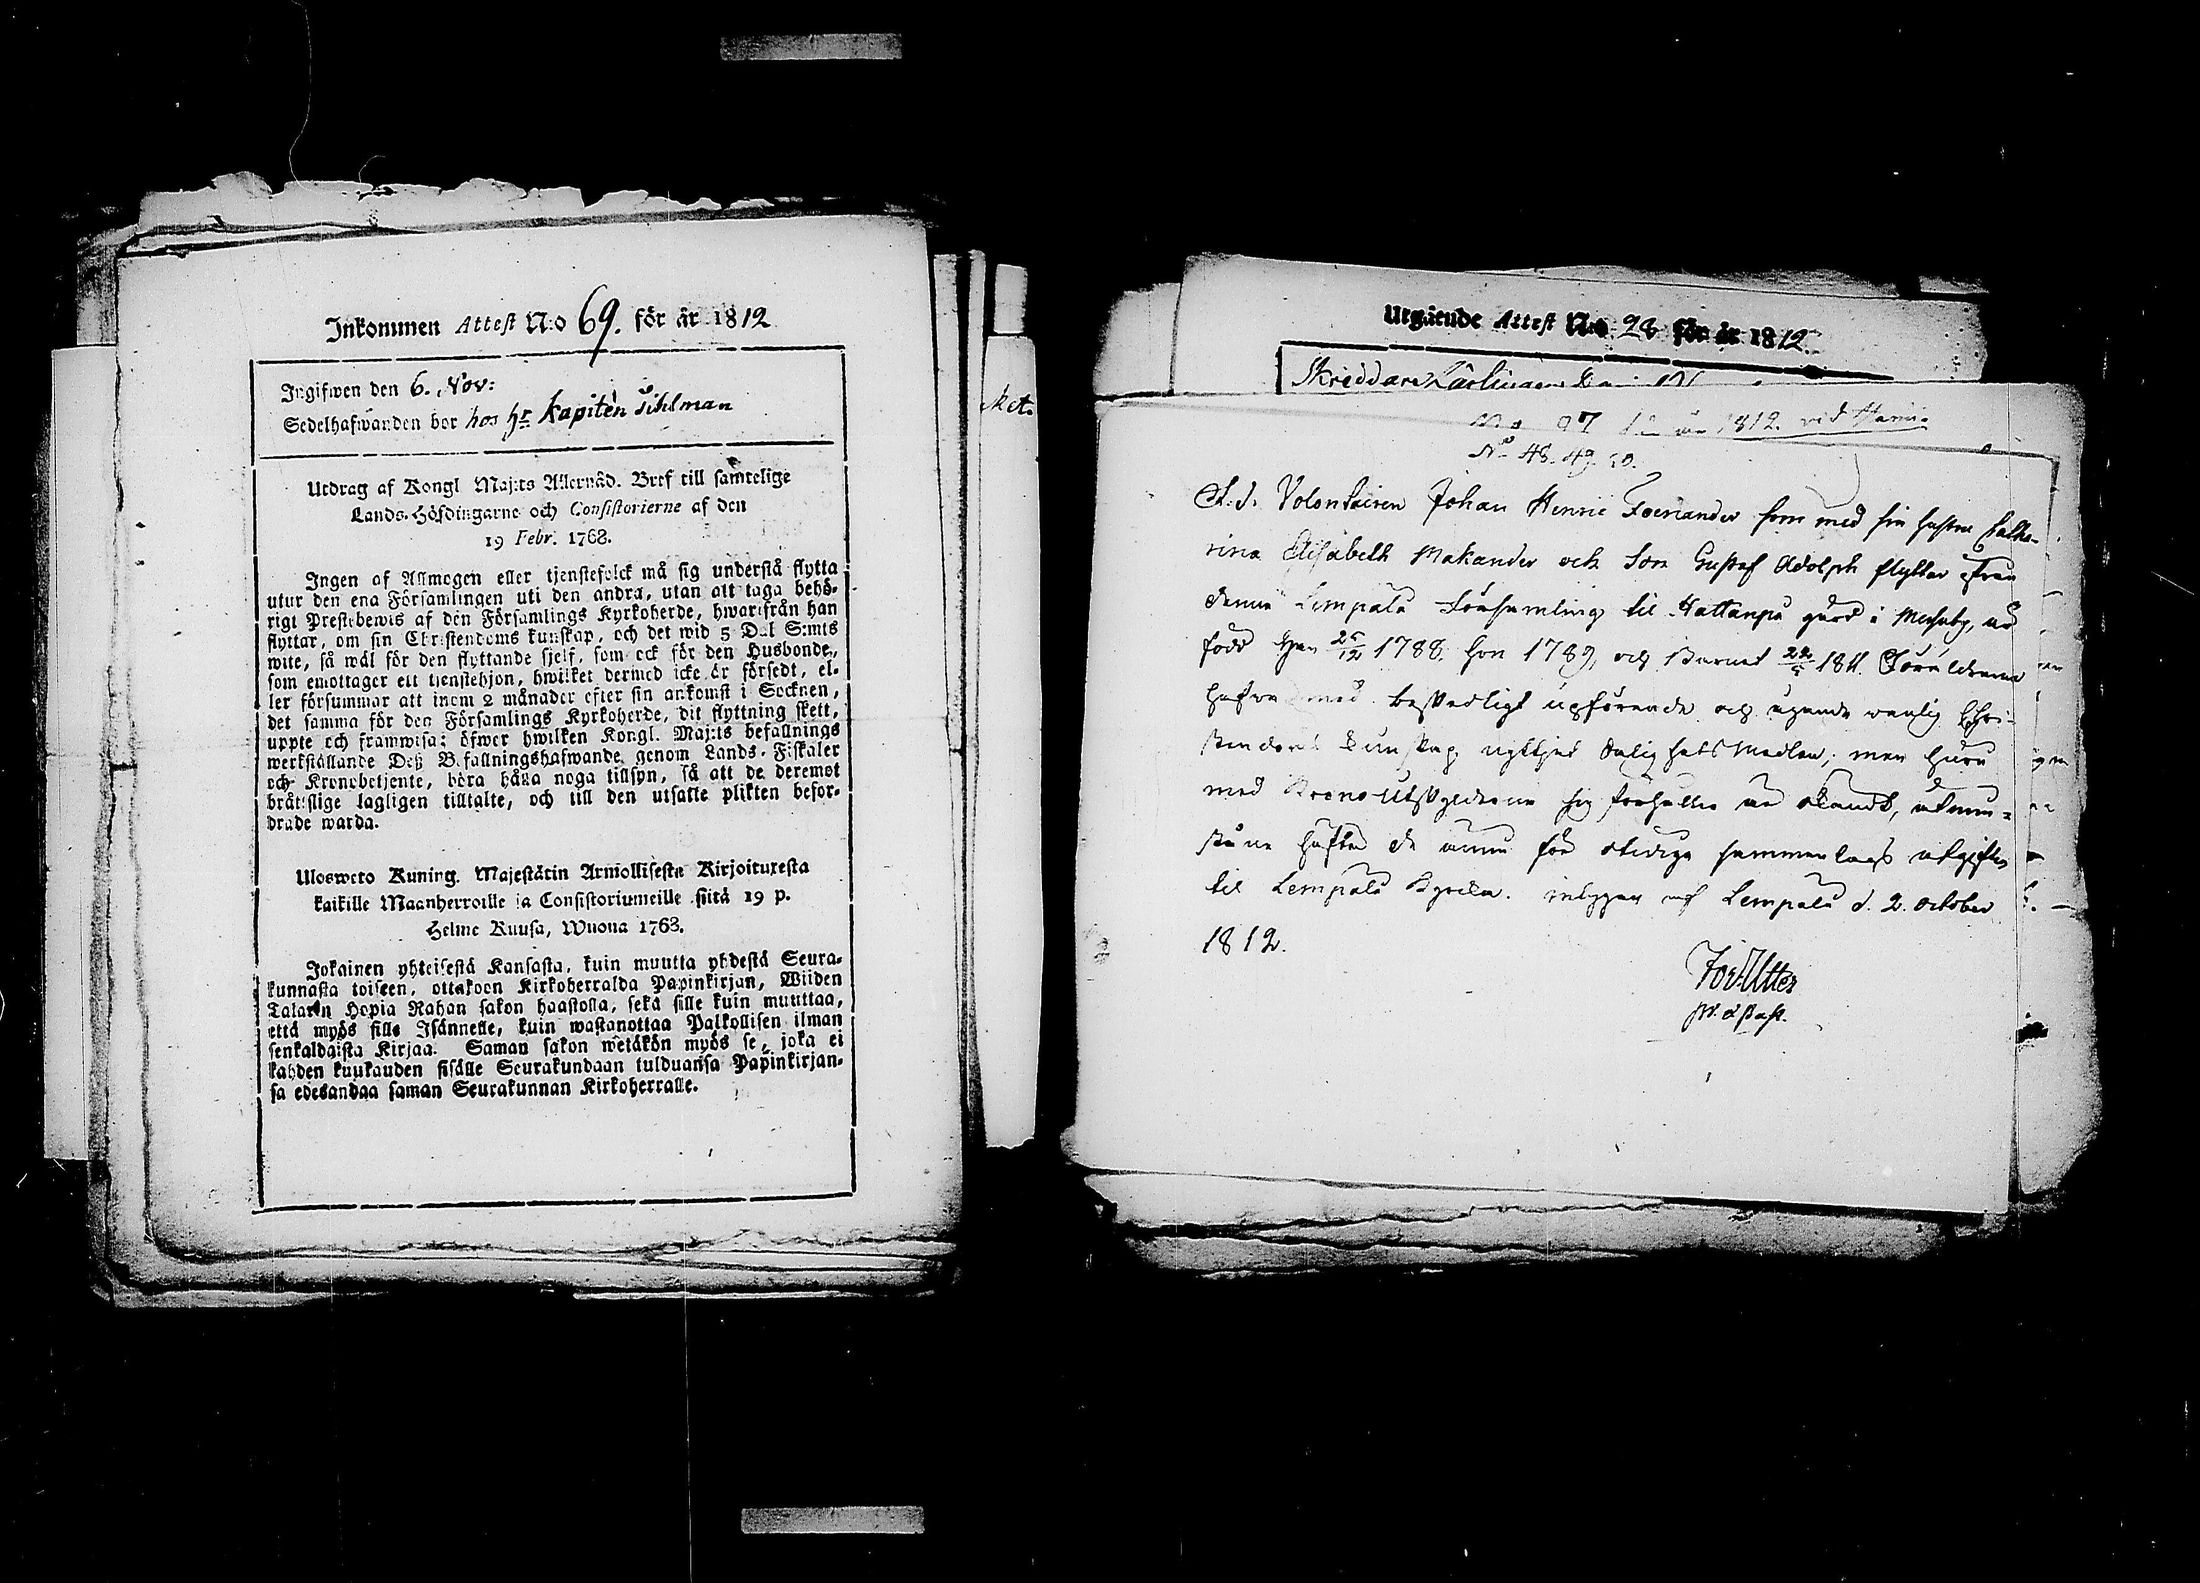 Inkommen Attest N:o 69. för år 1812
Ingifwen den 6. Nov:
Sedelhafwanden bor hos hr kapiten Tihlman
Utdrag af Kongl Maj:ts Allernåd. Bref till samtelige
Lands-Höfdingarne och Consistorierne af den
19 Febr. 1768.
Ingen af Allmogen eller tjenstefolck må sig understå flytta
utur den ena Församlingen uti den andra, utan att taga behö-
rigt Prestebewis af den Församlings Kyrkoherde, hwarifrån han
flyttar, om sin Christendoms kunskap, och det wid 5 Dal S:mts
wite, så wäl för den flyttande sjelf, som ock för den Husbonde,
som emottager ett tjenstehjon, hwilket dermed icke är försedt, el-
ler försummar att inom 2 månader efter sin ankomst i Socknen,
det samma för den Församlings Kyrkoherde, dit flyttning skett,
uppte och framwisa; öfwer hwilken Kongl. Maj:ts befallnings
werkställande Deß Befallningshafwande genom Lands-Fiskaler
och Kronobetjente, böra hålla noga tillsyn, så att de deremot
bråttslige lagligen tilltalte, och till den utsatte plikten befor-
drade warda.
Ulosweto Kuning. Majestätin Armollisesta Kirjoituxesta
kaikille Maanherroille ja Consistoriumeille siitä 19 p.
Helme Kuusa, Wuona 1768.
Jokainen yhteisestä Kansasta, kuin muutta yhdestä Seura-
kunnasta toiseen, ottakoon Kirkoherralda Papinkirjan, Wiiden
Talarin Hopia Rahan sakon haastolla, sekä sille kuin muuttaa,
että myös sille Isännelle, kuin wastanottaa Palkollisen ilman
senkaldaista Kirjaa. Saman sakon wetäkön myös se, joka ei
kahden kuukauden sisälle Seurakundaan tulduansa Papinkirjan-
sa edesandaa saman Seurakunnan Kirkoherralle.
Utgående Attest N:o 28 för år 1812
Skriddare
1812. vid
No 48. 49. 50.
Volontairen Johan Henric Foenander som med sin hustru Catha-
rina Elisabeth Makander och Son Gustaf Adolph flyttar ifrån
denna Lempälä Församling til Hattanpä gård i Messuby, är
född Han 25/12 1788. Hon 1789, och Barnet 1811. Föräldrarne
hafva med beskedligt upförande och ägande vanlig Chri-
stendoms Kunskap nyttjat Salighets Medlen; men huru
med Krono Utskylderne sig förhåller är okandt, utmu-
til Lempälä Kyrka. intygar af Lempälä d. 2. October
1812.